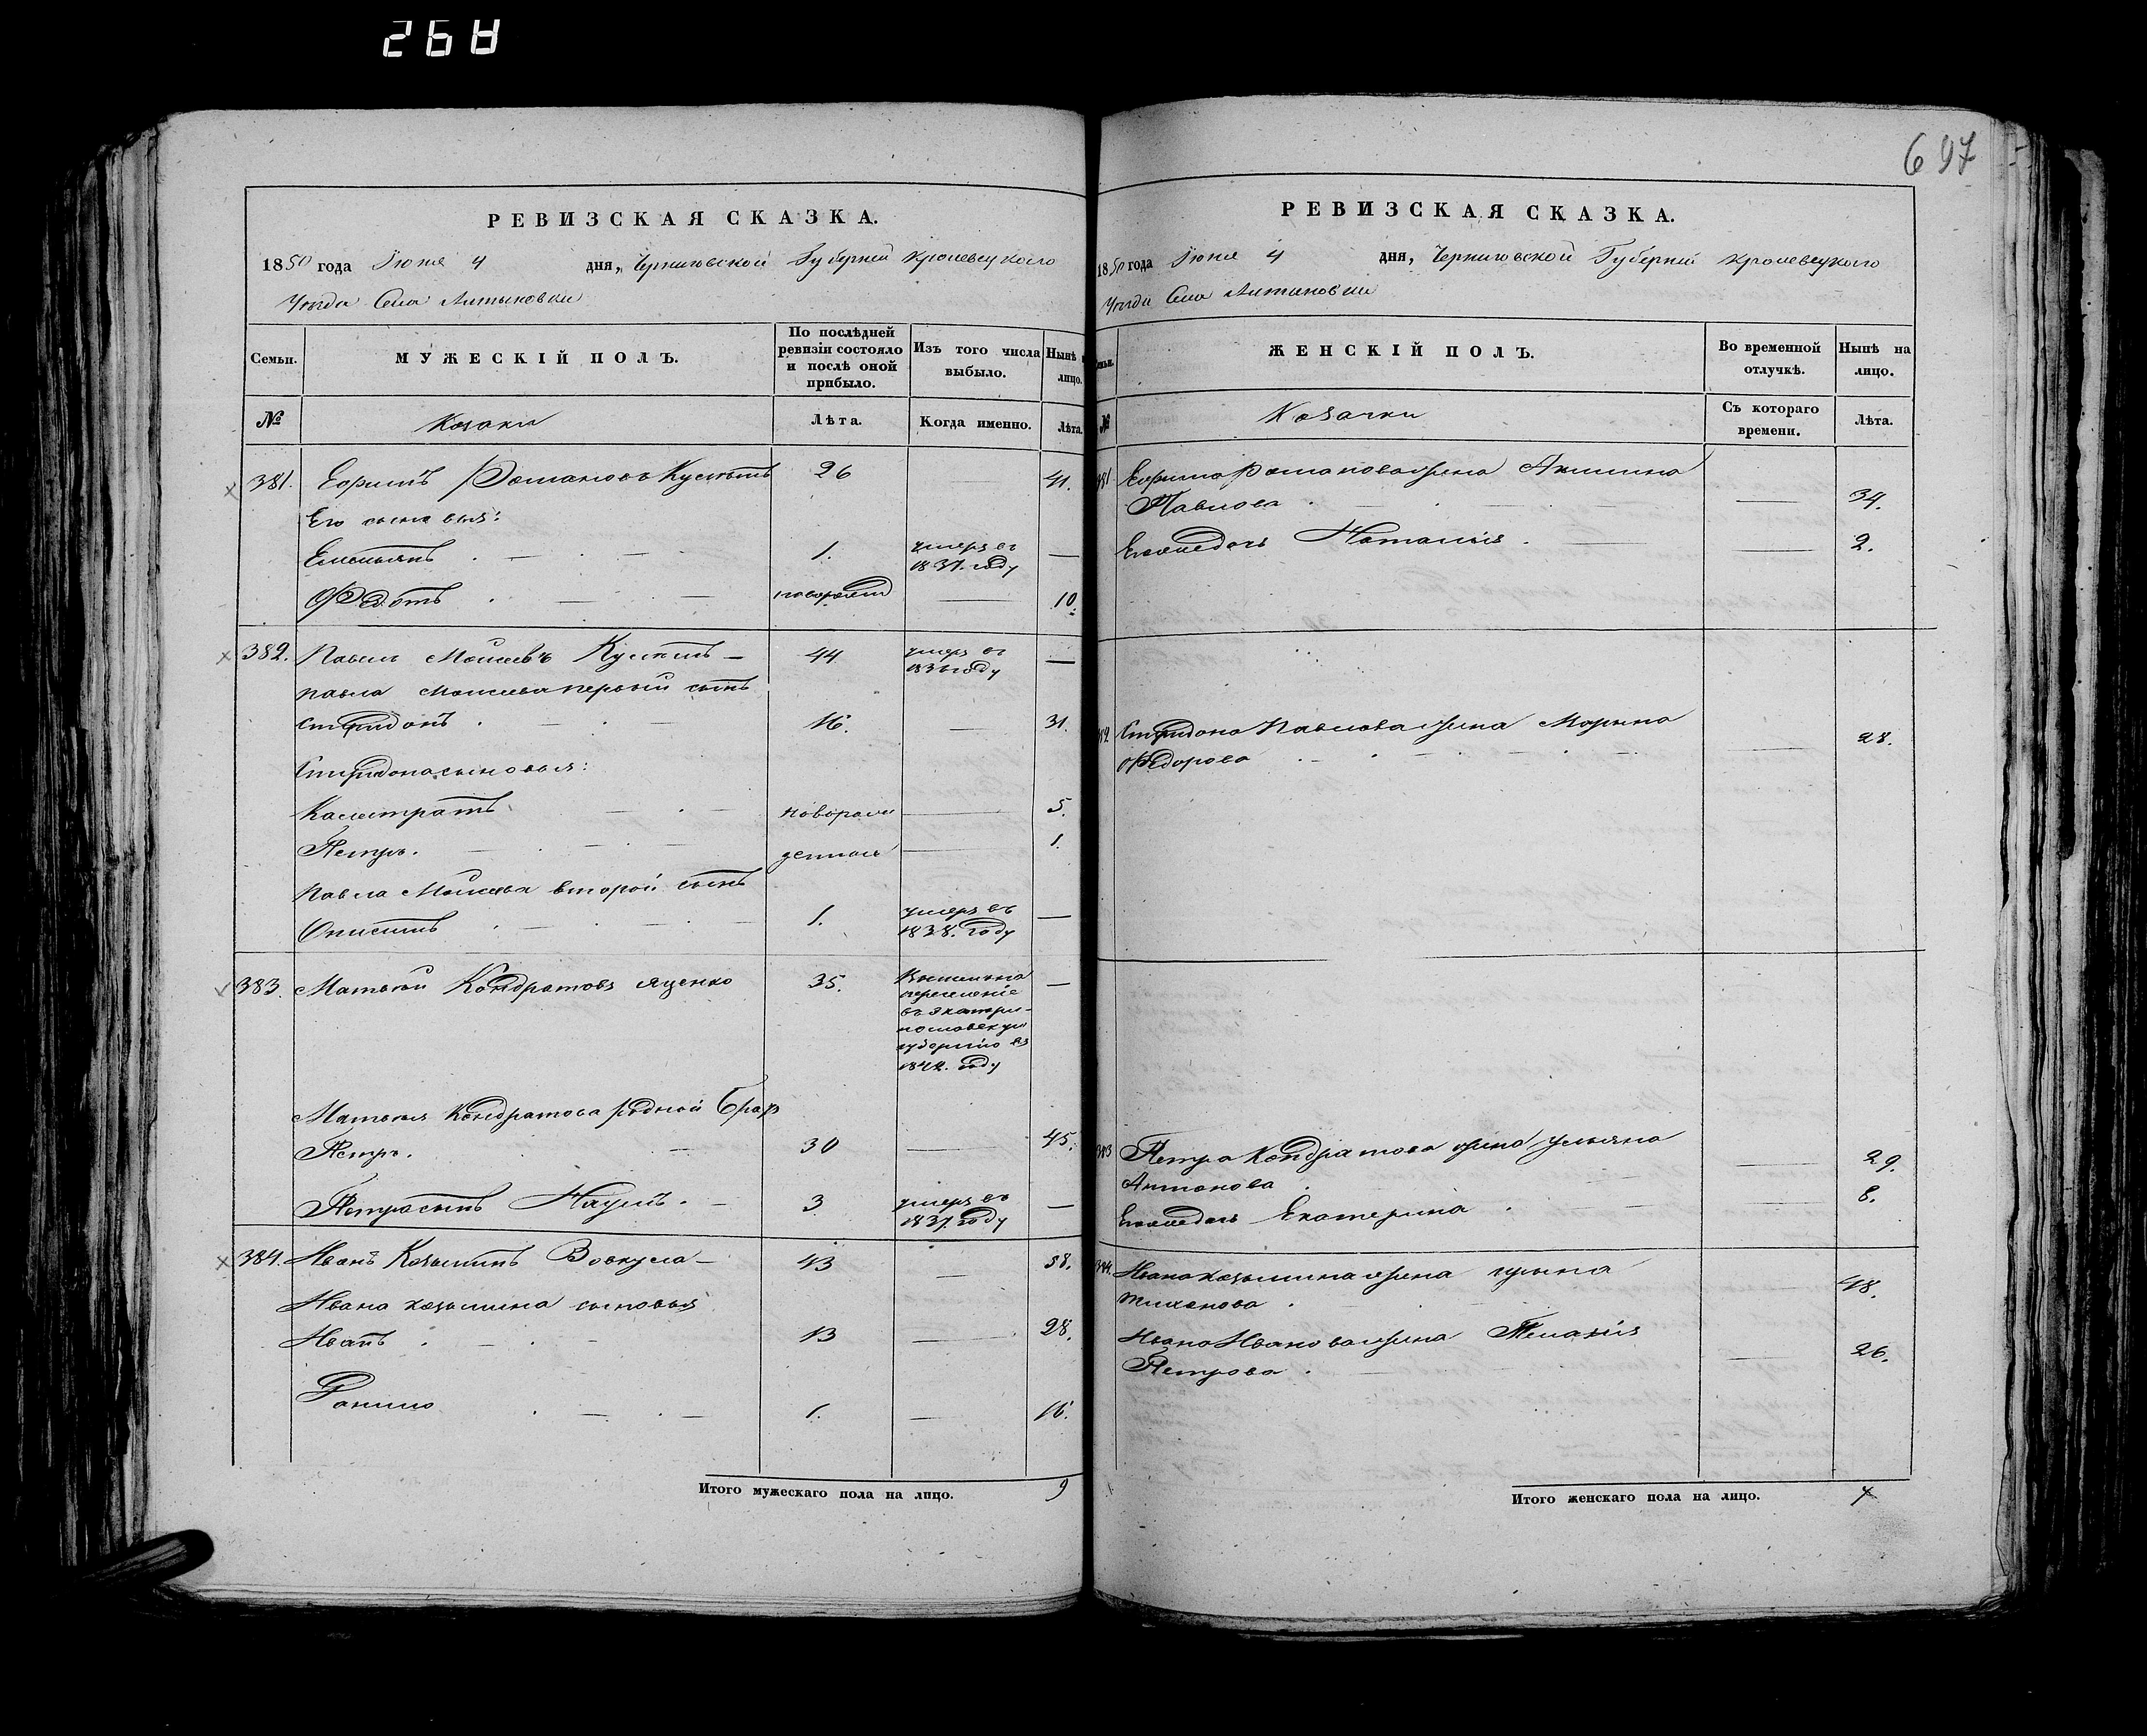 268
697
РЕВИЗСКАЯ СКАЗКА.
1850 года Іюня 4 дня, Черниговской Губерніи Кролевецкого
Уезда Села Алтыновки
Семьи.
МУЖЕСКІЙ ПОЛЪ.
По послѣдней ревизіи состояло и послѣ оной прибыло.
Изъ того числа выбыло.
Нынѣ лицо.
№
Козаки
Лѣта.
Когда именно.
Лѣта.
381. Ефимъ Романовъ 26 — 41.
Его сыновья:
Емельянъ 1. умеръ въ 1837. году —
Федотъ новорожд — 10.
382. Павелъ Моисеевъ 44 умеръ въ 1836 году —
Павла Моисеева первый сынъ
Спиридонъ 16. — 31.
Спиридона сыновья:
Калистратъ новорож — 5.
Петръ. денные — 1.
Павла Моисеева второй сынъ
Онисимъ 1. умеръ въ 1838. году —
383. Матвей Кондратовъ Яценко 35. —
переселеніе
въ Екатери-
нославскую
губернію въ
184 году
Матвея Кондратова родной братъ
Петръ. 30 — 45.
Петра сынъ Наумъ. 3 умеръ въ 1837. году —
384. Иванъ Козьминъ Вовкула 43 — 58.
Ивана Козьмина сыновья
Иванъ 13 — 28.
Данило 1. — 16.
Итого мужескаго пола на лицо. 9
РЕВИЗСКАЯ СКАЗКА.
1850 года Іюня 4 дня, Черниговской Губерніи Кролевецкого
Уезда Села Алтыновки
Семьи.
ЖЕНСКІЙ ПОЛЪ.
Во временной отлучкѣ.
Нынѣ на лицо.
№
Козачки
Съ котораго времени.
Лѣта.
381 Ефима Романова жена Акилина
Павлова — 34.
Его же дочь Наталия — 2.
382 Спиридона Павлова жена Марина
Федорова — 28.
383 Петра Кондратова жена Ульяна
Антонова — 29.
Его же дочь Екатерина — 8.
384. Ивана Козьмина жена
Тиханова — 48.
Ивана Иванова жена Мелания
Петрова — 26.
Итого женскаго пола на лицо. 7